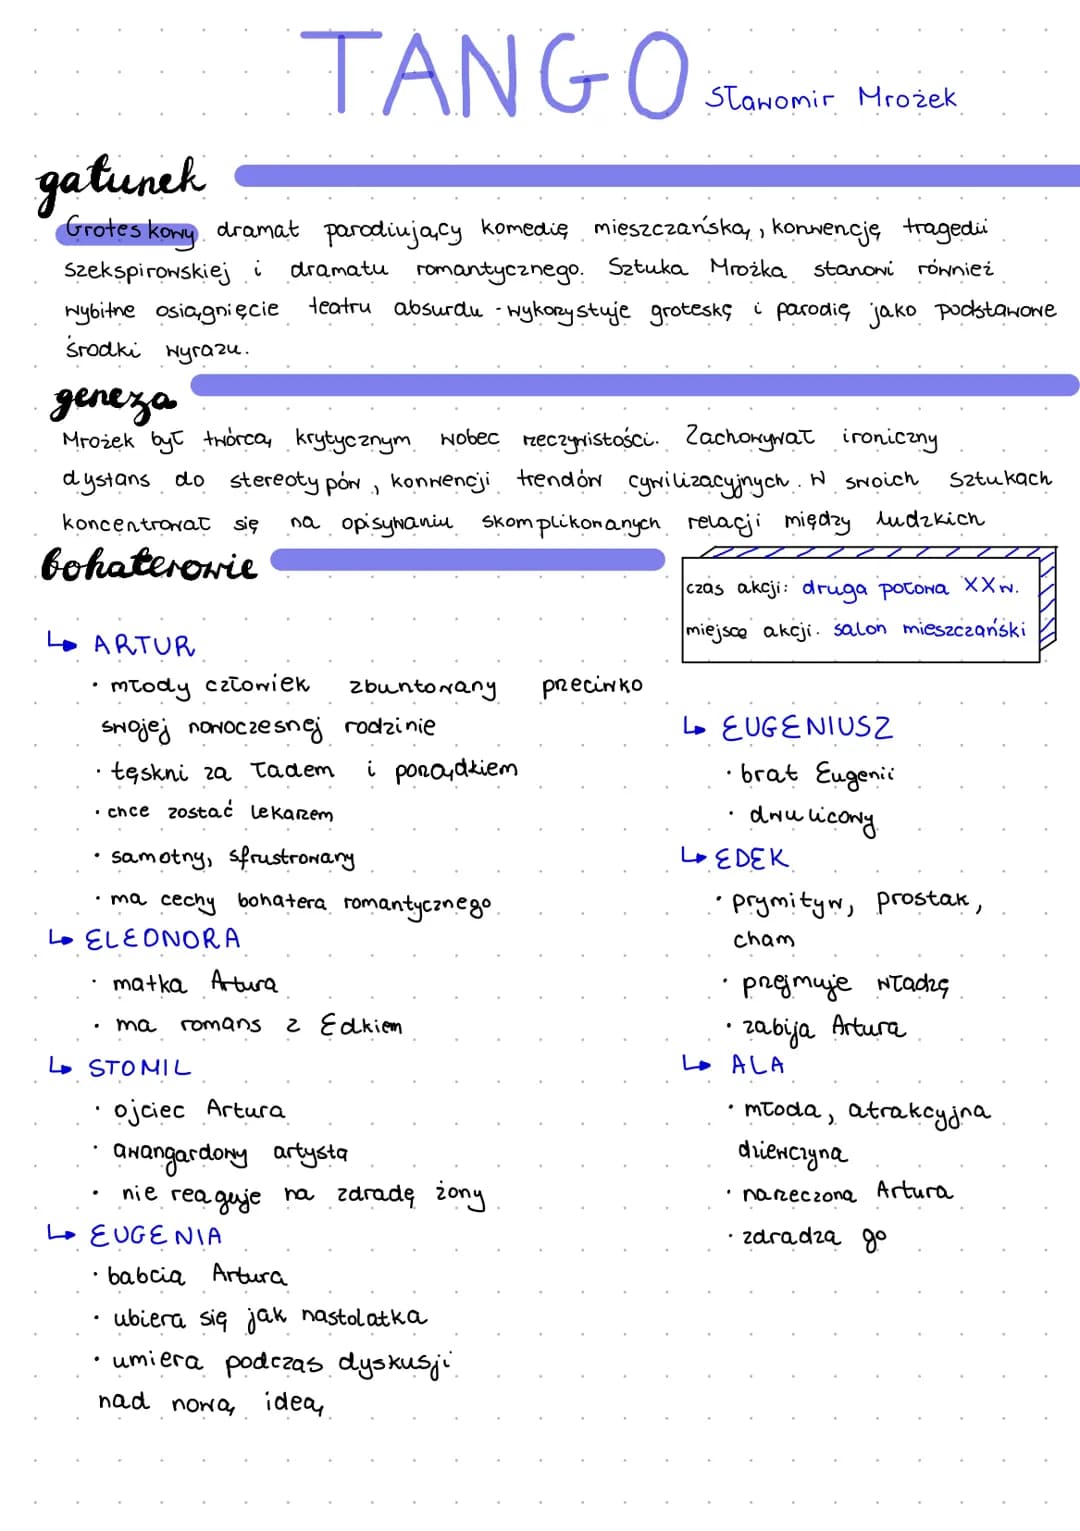 TANGO Sławomir Mrożek
gatunek
Groteskowy dramat parodiujący komedię mieszczańską, konwencję tragedii
szekspirowskiej i dramatu romantycznego. Sztuka Mrożka stanowi również
wybitne osiągnięcie teatru absurdu - wykorzystuje groteskę i parodię jako podstawowe
środki wyrazu.
geneza
Mrożek był twórcą krytycznym wobec rzeczywistości. Zachowywał ironiczny
dystans do stereotypów, konwencji trendów cywilizacyjnych. W swoich sztukach
koncentrował się na opisywaniu skomplikowanych relacji między ludzkich
bohaterowie
czas akcji: druga połowa XXw.
miejsce akcji. salon mieszczański
↳ ARTUR
• młody człowiek zbuntowany przeciwko
swojej nowoczesnej rodzinie
• tęskni za ładem i porządkiem
• chce zostać lekarzem
• samotny, sfrustrowany
• ma cechy bohatera romantycznego
↳ ELEONORA
• matka Artura
• ma romans z Edkiem
↳ STOMIL
• ojciec Artura
• awangardowy artysta
• nie reaguje na zdradę żony
↳ EUGENIA
• babcia Artura
• ubiera się jak nastolatka
• umiera podczas dyskusji
nad nową ideą
↳ EUGENIUSZ
• brat Eugenii
• dwulicowy
↳ EDEK
• prymityw, prostak,
cham
• przejmuje władzę
• zabija Artura
↳ ALA
• młoda, atrakcyjna
dziewczyna
• narzeczona Artura
• zdradza go